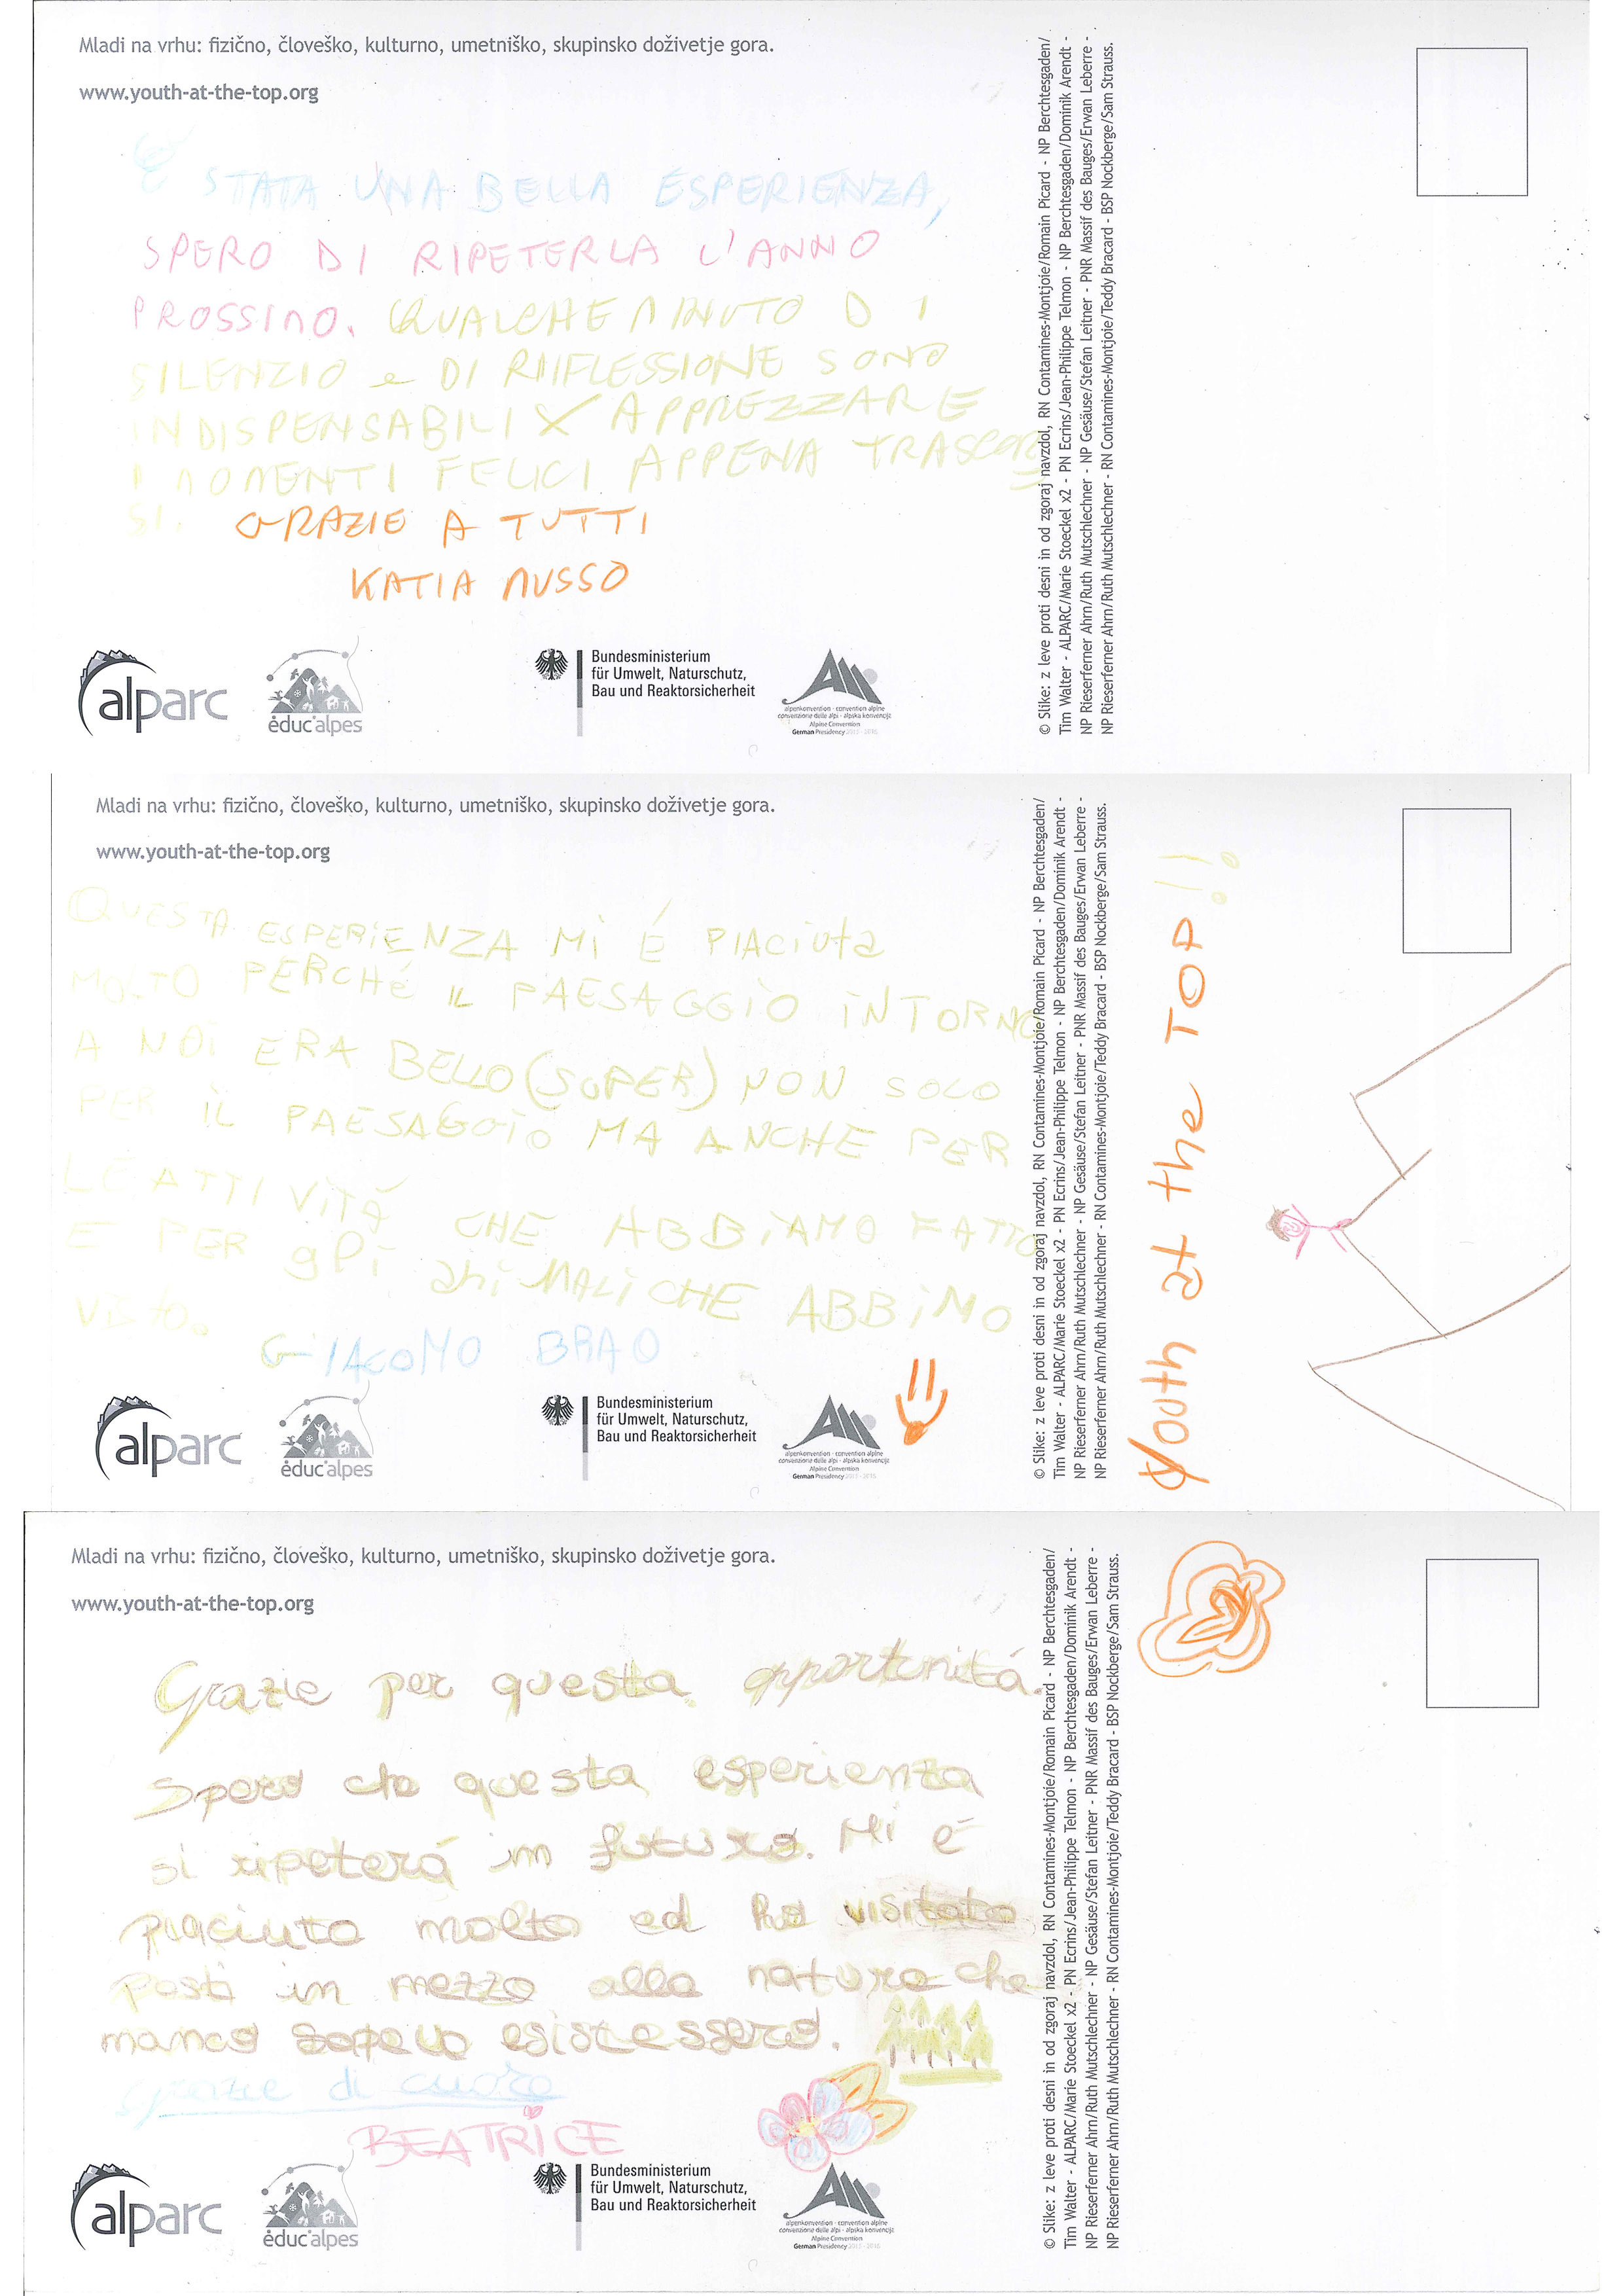 Mladi na vrhu: fizično, človeško, kulturno, umetniško, skupinsko doživetje gora.
www.youth-at-the-top.org
È STATA UNA BELLA ESPERIENZA,
SPERO DI RIPETERLA L'ANNO
PROSSIMO. QUALCHE MINUTO DI
SILENZIO e DI RIIFLESSIONE SONO
INDISPENSABILI X APPREZZARE
I MOMENTI FELICI APPENA TRASCOR
SI. GRAZIE A TUTTI
KATIA MUSSO
alparc
éduc'alpes
Bundesministerium
für Umwelt, Naturschutz,
Bau und Reaktorsicherheit
alpenkonvention · convention alpine
convenzione delle alpi · alpska konvencija
Alpine Convention
German Presidency 2015 - 2016
© Slike: z leve proti desni in od zgoraj navzdol, RN Contamines-Montjoie/Romain Picard - NP Berchtesgaden/
Tim Walter - ALPARC/Marie Stoeckel x2 - PN Ecrins/Jean-Philippe Telmon - NP Berchtesgaden/Dominik Arendt -
NP Rieserferner Ahrn/Ruth Mutschlechner - NP Gesäuse/Stefan Leitner - PNR Massif des Bauges/Erwan Leberre -
NP Rieserferner Ahrn/Ruth Mutschlechner - RN Contamines-Montjoie/Teddy Bracard - BSP Nockberge/Sam Strauss.
Mladi na vrhu: fizično, človeško, kulturno, umetniško, skupinsko doživetje gora.
www.youth-at-the-top.org
QUESTA ESPERiENZA Mi É PIACiUta
MOLTO PERCHé IL PAESAGGiO iNTORNO
A NOi ERA BELLO (SUPER) NON SOLO
PER iL PAESAGGiO MA ANCHE PER
LE ATTIViTÁ CHE ABBiAMO FATTO
E PER gli aniMALi CHE ABBiMO
VISto.
GiACOMO BRAO
alparc
éduc'alpes
Bundesministerium
für Umwelt, Naturschutz,
Bau und Reaktorsicherheit
alpenkonvention · convention alpine
convenzione delle alpi · alpska konvencija
Alpine Convention
German Presidency 2015 - 2016
© Slike: z leve proti desni in od zgoraj navzdol, RN Contamines-Montjoie/Romain Picard - NP Berchtesgaden/
Tim Walter - ALPARC/Marie Stoeckel x2 - PN Ecrins/Jean-Philippe Telmon - NP Berchtesgaden/Dominik Arendt -
NP Rieserferner Ahrn/Ruth Mutschlechner - NP Gesäuse/Stefan Leitner - PNR Massif des Bauges/Erwan Leberre -
NP Rieserferner Ahrn/Ruth Mutschlechner - RN Contamines-Montjoie/Teddy Bracard - BSP Nockberge/Sam Strauss.
Youth at the TOP!!
Mladi na vrhu: fizično, človeško, kulturno, umetniško, skupinsko doživetje gora.
www.youth-at-the-top.org
Grazie per questa opportunitá.
Spero che questa esperienza
si ripeterá in futuro. Mi é
piaciuta molto ed ho visitato
posti in mezzo alla natura che
manco sapevo esistessero.
Grazie di cuore
BEATRICE
alparc
éduc'alpes
Bundesministerium
für Umwelt, Naturschutz,
Bau und Reaktorsicherheit
alpenkonvention · convention alpine
convenzione delle alpi · alpska konvencija
Alpine Convention
German Presidency 2015 - 2016
© Slike: z leve proti desni in od zgoraj navzdol, RN Contamines-Montjoie/Romain Picard - NP Berchtesgaden/
Tim Walter - ALPARC/Marie Stoeckel x2 - PN Ecrins/Jean-Philippe Telmon - NP Berchtesgaden/Dominik Arendt -
NP Rieserferner Ahrn/Ruth Mutschlechner - NP Gesäuse/Stefan Leitner - PNR Massif des Bauges/Erwan Leberre -
NP Rieserferner Ahrn/Ruth Mutschlechner - RN Contamines-Montjoie/Teddy Bracard - BSP Nockberge/Sam Strauss.